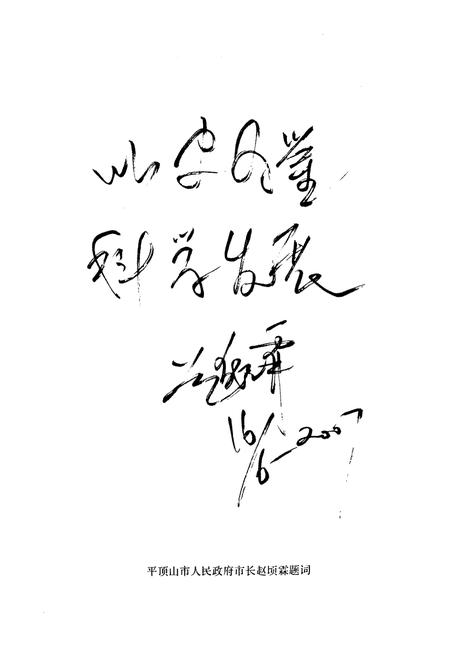 以史为鉴
科学发展
赵顷霖
16/6-2007
平顶山市人民政府市长赵顷霖题词